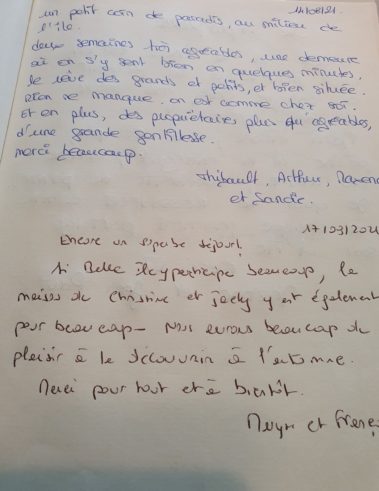 14/08/21.
un petit coin de paradis, au milieu de
l'île.
deux semaines très agréables, une demeure
où on s'y sent bien en quelques minutes,
le rêve des grands et petits, et bien située.
Rien ne manque. on est comme chez soi.
Et en plus, des propriétaires plus qu'agréables,
d'une grande gentillesse.
merci beaucoup.
Thibault, Arthur,
et Sandie.
17/09/202
Encore un superbe séjour!
Si Belle Ile y participe beaucoup, la
maison de Christine et Jacky y est également
pour beaucoup - Nous aurons beaucoup de
plaisir à la découvrir à l'automne.
Merci pour tout et à bientôt.
et